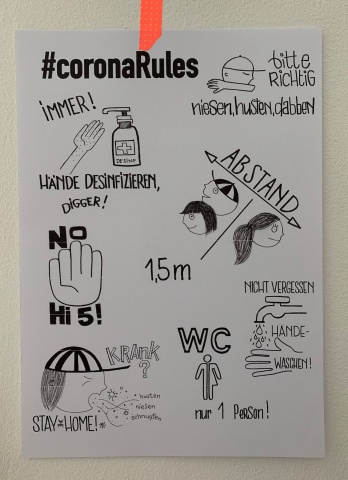 #coronaRules
bitte
RICHTIG
niesen, husten, dabben
immer!
DESINF
HÄNDE DESINFIZIEREN,
DIGGER!
ABSTAND
1,5m
NO
Hi 5!
NICHT VERGESSEN
HÄNDE-
WASCHEN!
KRANK
?
husten
niesen
schnupfen
STAY HOME!
WC
nur 1 Person!